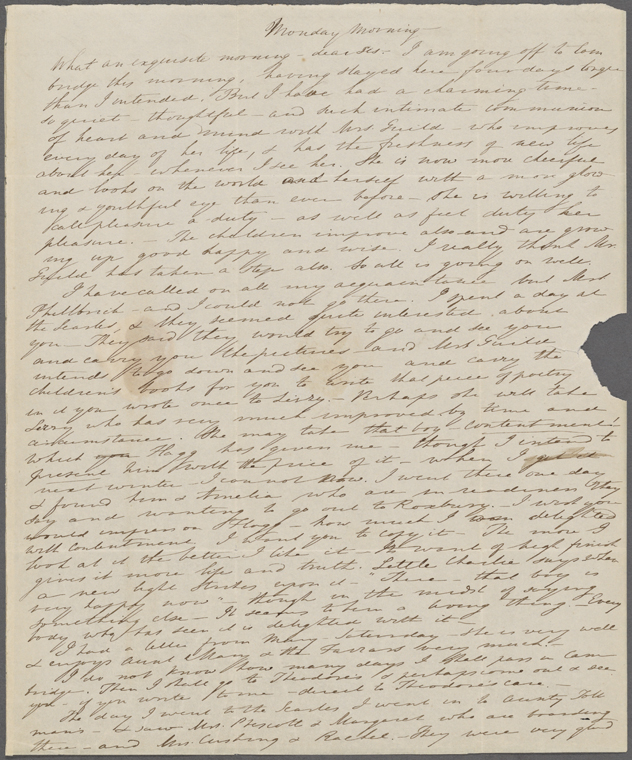 Monday Morning
What an exquisite morning - dear Sis - I am going off to Cam
bridge this morning, having stayed here four days longer
than I intended. But I have had a charming time -
so quiet - thoughtful - and such intimate communion
of heart and mind with Mrs Guild - who improves
every day of her life, & has the freshness of new life
about her - whenever I see her. She is now more cheerful
and looks on the world and herself with a more glow
ing & youthful eye than ever before - She is willing to
call pleasure a duty - as well as feel duty her
pleasure. - The children improve also and are grow
ing up good happy and wise. I really think Mr.
Guild has taken a step also. So all is going on well.
I have called on all my acquaintance but Mrs
Philbrick - and I could not go there. I spent a day at
the Searles, & they seemed quite interested about
you - They said they would try to go and see you
and carry you the pictures - and Mrs Guild
intends to go down and see you and carry the
children's books for you to write that piece of poetry
in it you wrote once to Lizzy. - Perhaps she will take
Lizzy who has very much improved by time and
circumstance. She may take that boy "contentment"
which Flagg has given me - though I intend to
present him with the price of it - when I
next winter - I cannot now. I went there one day
& found him & Amelia who are in readiness
and wanting to go out to Roxbury. - I wish you
would impress on Flagg - how much I am delighted
with contentment I want you to copy it - The more I
look at it the better I like it - Its want of high finish
gives it more life and truth. Little Charlie says when
a new light strikes upon it - "There - that boy is
very happy now" - though in the midst of saying
something else - It seems to him a living thing - Every
body who has seen it is delighted with it -
I had a letter from Mary - Saturday - She is very well
& enjoys Aunt Mary & the Farrars very much. -
I do not know how many days I shall pass in Cam
bridge. Then I shall go to Theodore's & perhaps come out & see
you - if you write to me - direct to Theodore's care -
The day I went to the Searles I went in to Aunty Tutt
mans - & saw Mrs. Prescott & Margaret who are boarding
there - and Mrs. Cushing & Rachel. - They were very glad